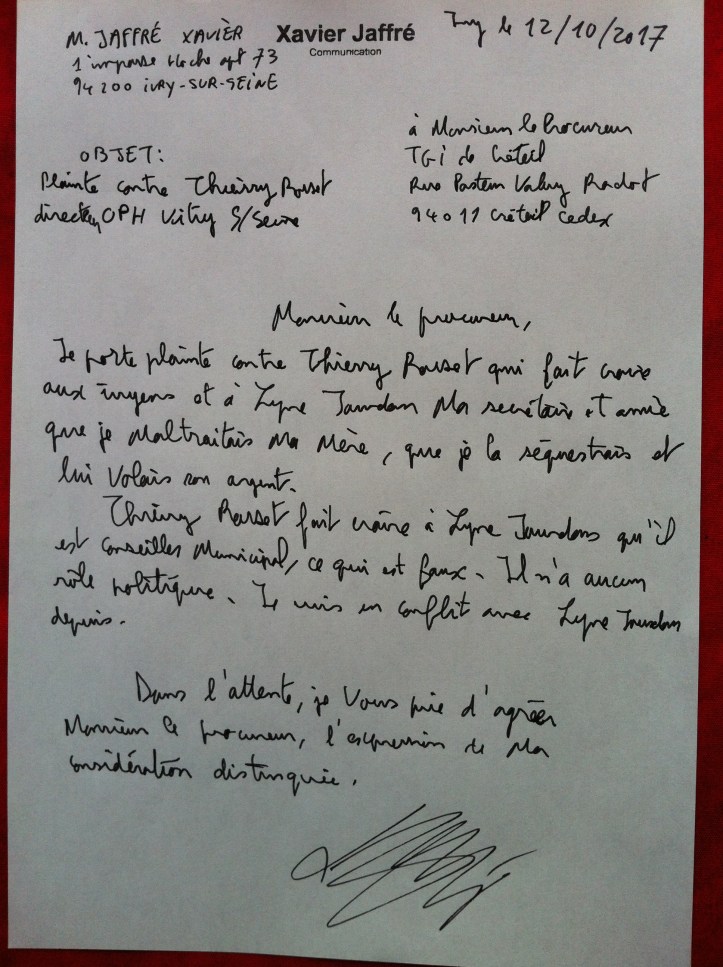 M. JAFFRÉ XAVIER
Xavier Jaffré
Communication
Ivry le 12/10/2017
1 impasse apt 73
94200 IVRY-SUR-SEINE
à Monsieur le Procureur
TGI de Créteil
Rue Pasteur Valery Radot
94011 Créteil Cedex
OBJET:
Plainte contre Thierry Rousset
OPH Vitry S/Seine
Monsieur le procureur,
Je porte plainte contre Thierry Rousset qui fait croire
aux et à Lyne Jourdan Ma secrétaire et amie
que je Maltraitais Ma Mère, que je la séquestrais et
lui Volais son argent.
Thierry Rousset fait croire à Lyne Jourdan qu'il
est Conseiller Municipal, ce qui est faux. Il n'a aucun
rôle politique. Je suis en conflit avec Lyne Jourdan
depuis.
Dans l'attente, je Vous prie d'agréer
Monsieur le procureur, l'expression de Ma
considération distinguée.